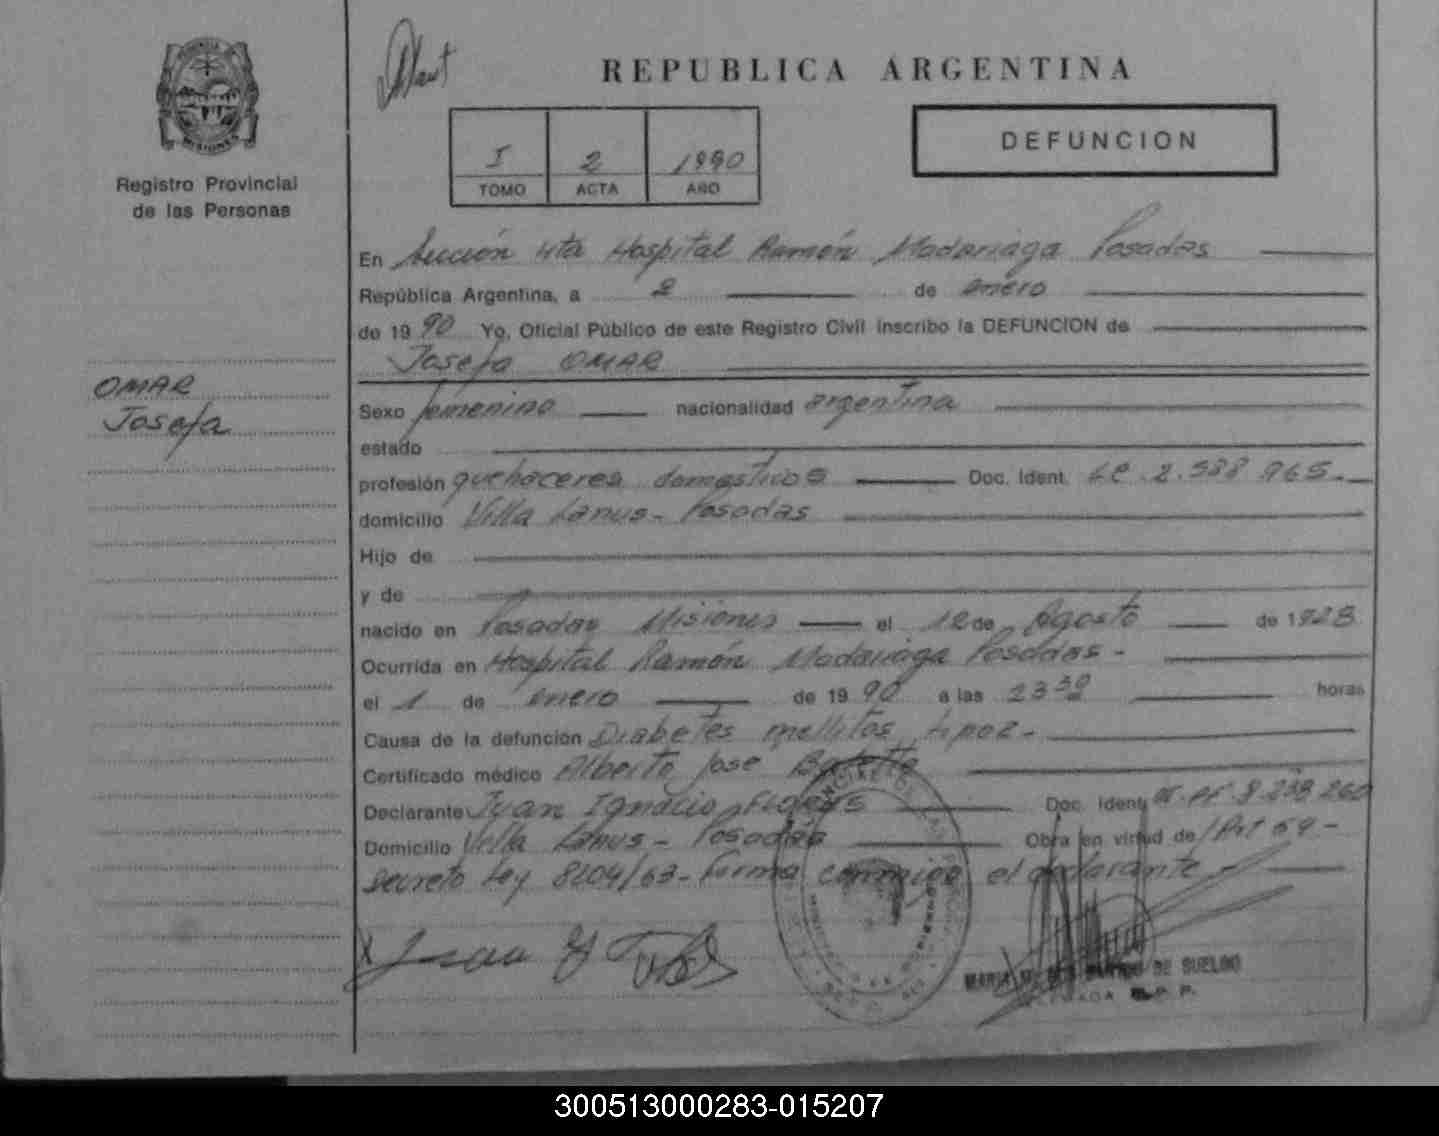 REPUBLICA ARGENTINA
DEFUNCION
I 2 1990
TOMO ACTA AÑO
MISIONES
Registro Provincial
de las Personas
OMAR
Josefa
En Sección 4ta Hospital Ramón Madariaga Posadas
República Argentina, a 2 de enero
de 1990 Yo, Oficial Público de este Registro Civil inscribo la DEFUNCION de
Josefa OMAR
Sexo femenino nacionalidad argentina
estado
profesión quehaceres domesticos Doc. Ident. LC. 2.588.965.-
domicilio Villa Lanus - Posadas
Hijo de
y de
nacido en Posadas Misiones el 12 de Agosto de 1928
Ocurrida en Hospital Ramón Madariaga Posadas -
el 1 de enero de 1990 a las 23 30 horas
Causa de la defunción Diabetes mellitos tipo 2 -
Certificado médico Alberto Jose
Declarante Juan Ignacio Flores Doc. Ident. 8.238.260
Domicilio Villa Lanus - Posadas Obra en virtud de Art 59 -
Decreto Ley 8204/63 - Firma conmigo el declarante -
DE SUELDO
300513000283-015207